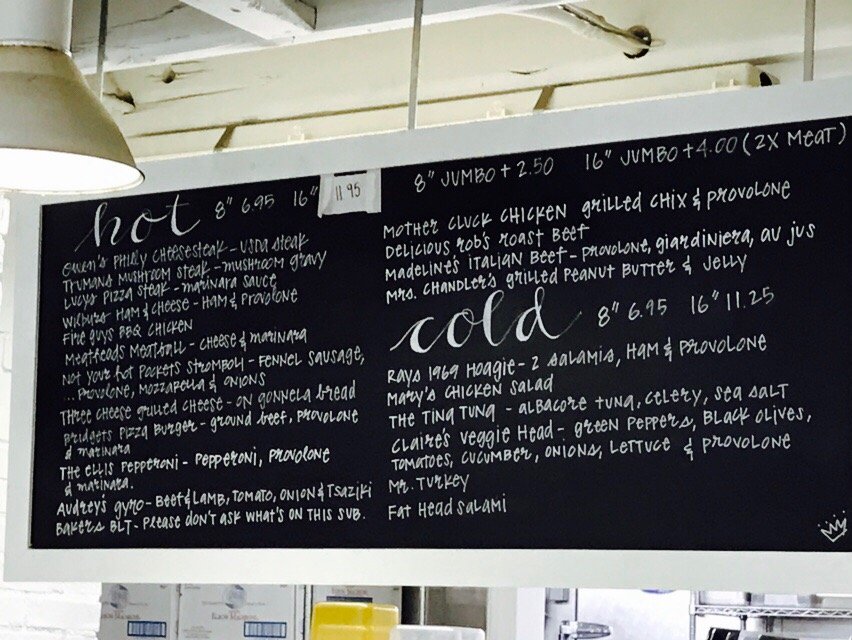 hot 8" 6.95 16" 11.95
Gwen's Philly Cheesesteak - USDA Steak
Trumans Mushroom Steak - mushroom gravy
Lucys Pizza Steak - marinara sauce
Wilburs Ham & Cheese - Ham & Provolone
Fire Guys BBQ Chicken
Meatheads Meatball - Cheese & marinara
Not your hot Pockets Stromboli - Fennel Sausage,
... Provolone, Mozzarella & Onions
Three Cheese Grilled Cheese - on Gonnela bread
Bridgets Pizza Burger - ground beef, Provolone
& marinara
The Ellis Pepperoni - Pepperoni, Provolone
& marinara.
Audrey's Gyro - Beef & Lamb, Tomato, Onion & Tsaziki
Bakers BLT - Please don't ask what's on this sub.
8" Jumbo + 2.50 16" Jumbo + 4.00 (2x Meat)
Mother Cluck Chicken grilled chix & Provolone
Delicious Rob's Roast Beef
Madeline's Italian Beef - Provolone, giardiniera, au jus
Mrs. Chandler's Grilled Peanut Butter & Jelly
cold 8" 6.95 16" 11.25
Rays 1969 Hoagie - 2 salamis, Ham & Provolone
Mary's Chicken Salad
The Tina Tuna - Albacore Tuna, Celery, Sea Salt
Claire's Veggie Head - green Peppers, Black Olives,
Tomatoes, Cucumber, Onions, Lettuce & Provolone
Mr. Turkey
Fat Head Salami